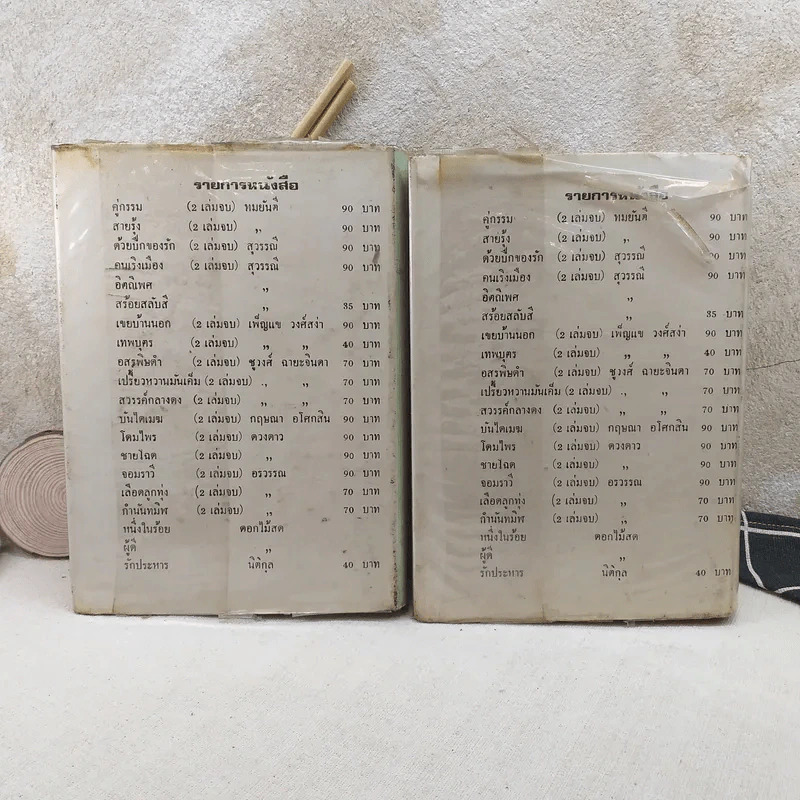 รายการหนังสือ
คู่กรรม (2 เล่มจบ) ทมยันตี 90 บาท
สายรุ้ง (2 เล่มจบ) ,, 90 บาท
ด้วยปีกของรัก (2 เล่มจบ) สุวรรณี 90 บาท
คนเริงเมือง (2 เล่มจบ) สุวรรณี 90 บาท
อิตถีเพศ ,,
สร้อยสลับสี ,, 35 บาท
เขยบ้านนอก (2 เล่มจบ) เพ็ญแข วงศ์สง่า 90 บาท
เทพบุตร (2 เล่มจบ) ,, ,, 40 บาท
อสรพิษดำ (2 เล่มจบ) ชูวงศ์ ฉายะจินดา 70 บาท
เปรี้ยวหวานมันเค็ม (2 เล่มจบ) ,, ,, 70 บาท
สวรรค์กลางดง (2 เล่มจบ) ,, ,, 70 บาท
บันไดเมฆ (2 เล่มจบ) กฤษณา อโศกสิน 90 บาท
โดมไพร (2 เล่มจบ) ดวงดาว 90 บาท
ชายโฉด (2 เล่มจบ) ,, 90 บาท
จอมราวี (2 เล่มจบ) อรวรรณ 90 บาท
เลือดลูกทุ่ง (2 เล่มจบ) ,, 70 บาท
กำนันทมิฬ (2 เล่มจบ) ,, 70 บาท
หนึ่งในร้อย ดอกไม้สด
ผู้ดี ,,
รักประหาร นิติกุล 40 บาท
รายการหนังสือ
คู่กรรม (2 เล่มจบ) ทมยันตี 90 บาท
สายรุ้ง (2 เล่มจบ) ,, 90 บาท
ด้วยปีกของรัก (2 เล่มจบ) สุวรรณี 90 บาท
คนเริงเมือง (2 เล่มจบ) สุวรรณี 90 บาท
อิตถีเพศ ,,
สร้อยสลับสี ,, 35 บาท
เขยบ้านนอก (2 เล่มจบ) เพ็ญแข วงศ์สง่า 90 บาท
เทพบุตร (2 เล่มจบ) ,, ,, 40 บาท
อสรพิษดำ (2 เล่มจบ) ชูวงศ์ ฉายะจินดา 70 บาท
เปรี้ยวหวานมันเค็ม (2 เล่มจบ) ,, ,, 70 บาท
สวรรค์กลางดง (2 เล่มจบ) ,, ,, 70 บาท
บันไดเมฆ (2 เล่มจบ) กฤษณา อโศกสิน 90 บาท
โดมไพร (2 เล่มจบ) ดวงดาว 90 บาท
ชายโฉด (2 เล่มจบ) ,, 90 บาท
จอมราวี (2 เล่มจบ) อรวรรณ 90 บาท
เลือดลูกทุ่ง (2 เล่มจบ) ,, 70 บาท
กำนันทมิฬ (2 เล่มจบ) ,, 70 บาท
หนึ่งในร้อย ดอกไม้สด
ผู้ดี ,,
รักประหาร นิติกุล 40 บาท